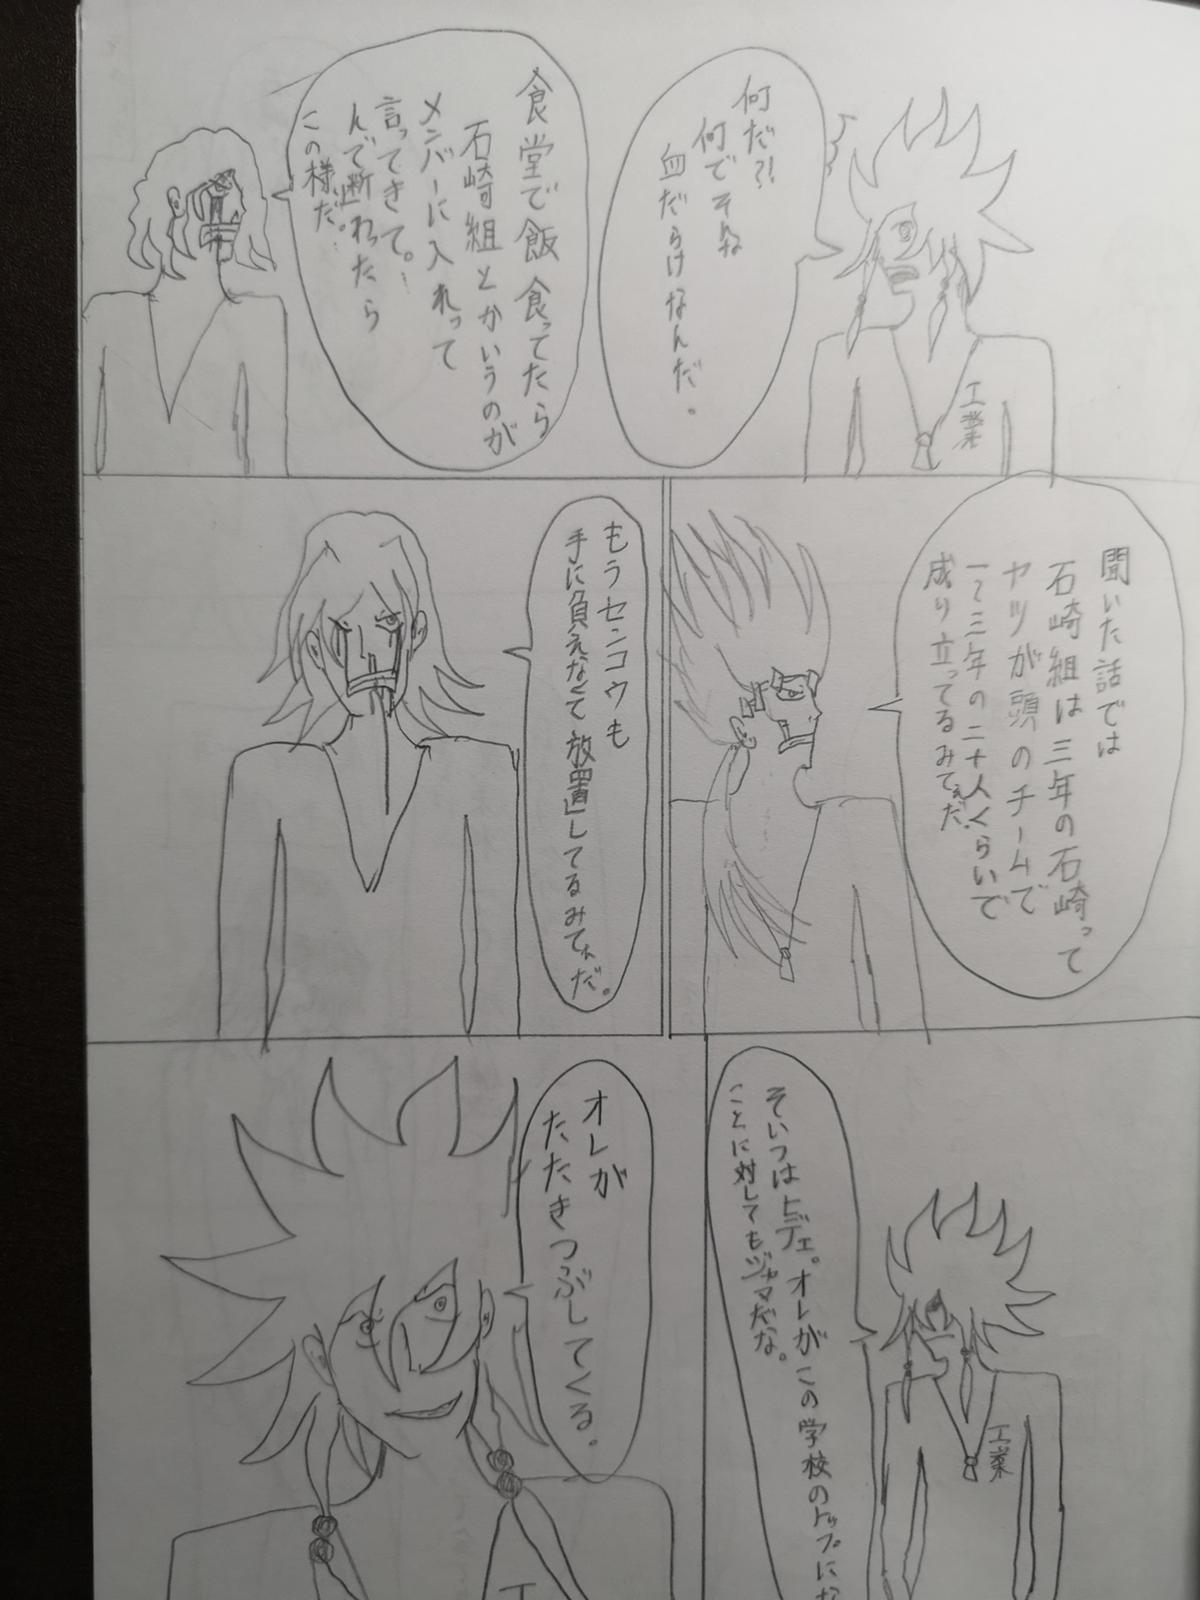 何だ?!
何でそんな
血だらけなんだ。
工業
食堂で飯食ってたら
石崎組とかいうのが
メンバーに入れって
言ってきて。
んで断わったら
この様だ。
聞いた話では
石崎組は三年の石崎って
ヤツが頭のチームで
一~三年の二十人くらいで
成り立ってるみてぇだ。
もうセンコウも
手に負えなくて放置してるみてぇだ。
そいつはヒデェ。オレがこの学校のトップにな
ことに対してもジャマだな。
工業
オレが
たたきつぶしてくる。
工